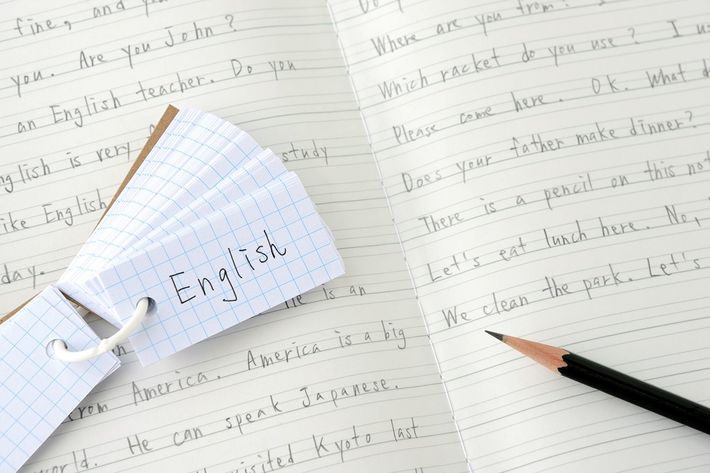 fine, and you
you. Are you John?
an English teacher. Do you
English is very
study
like English
day.
English
He is an
from America. America is a big
world. He can speak Japanese.
visited Kyoto last
Where are you from?
Which racket do you use? I us
Please come here. OK. What d
Does your father make dinner?
There is a pencil on this not
Let's eat lunch here. No,
We clean the park. Let's